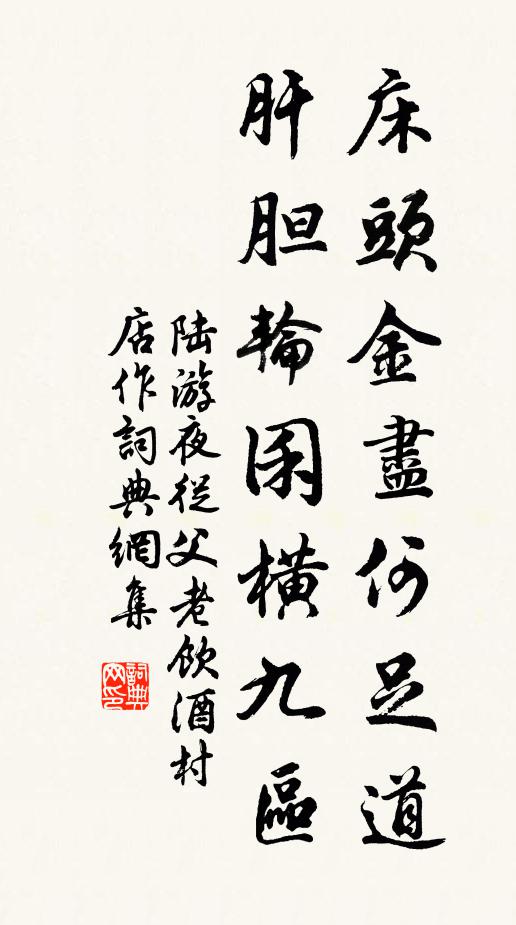 床頭金盡何足道
肝胆輪囷橫九區
陆游夜從父老飲酒村
店作詞典網集
詞典
网印